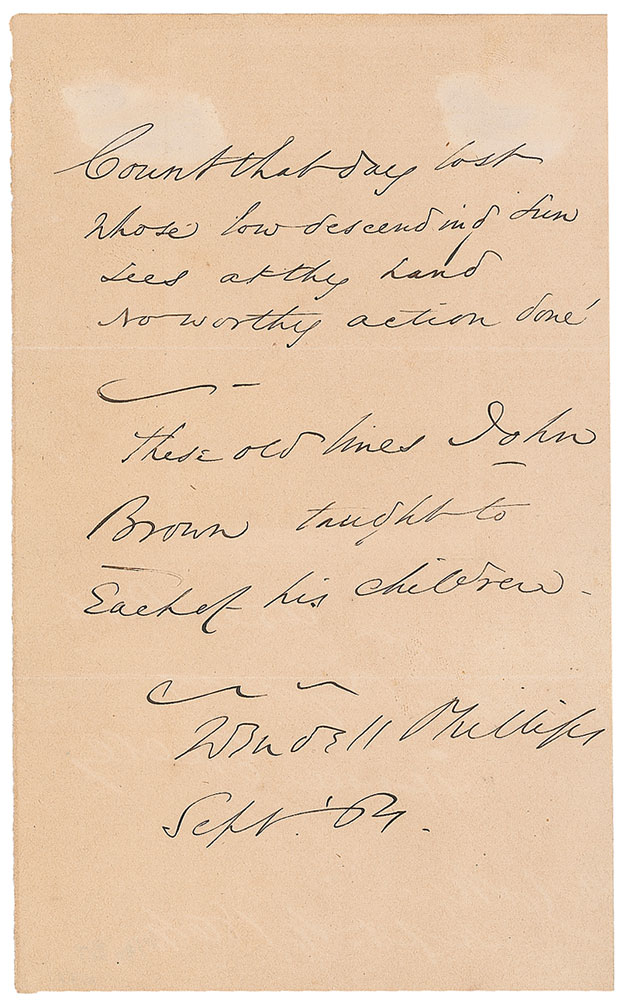 Count that day lost
Whose low descending sun
Sees at thy hand
No worthy action done
These old lines John
Brown taught to
Each of his children -
Wendell Phillips
Sept.